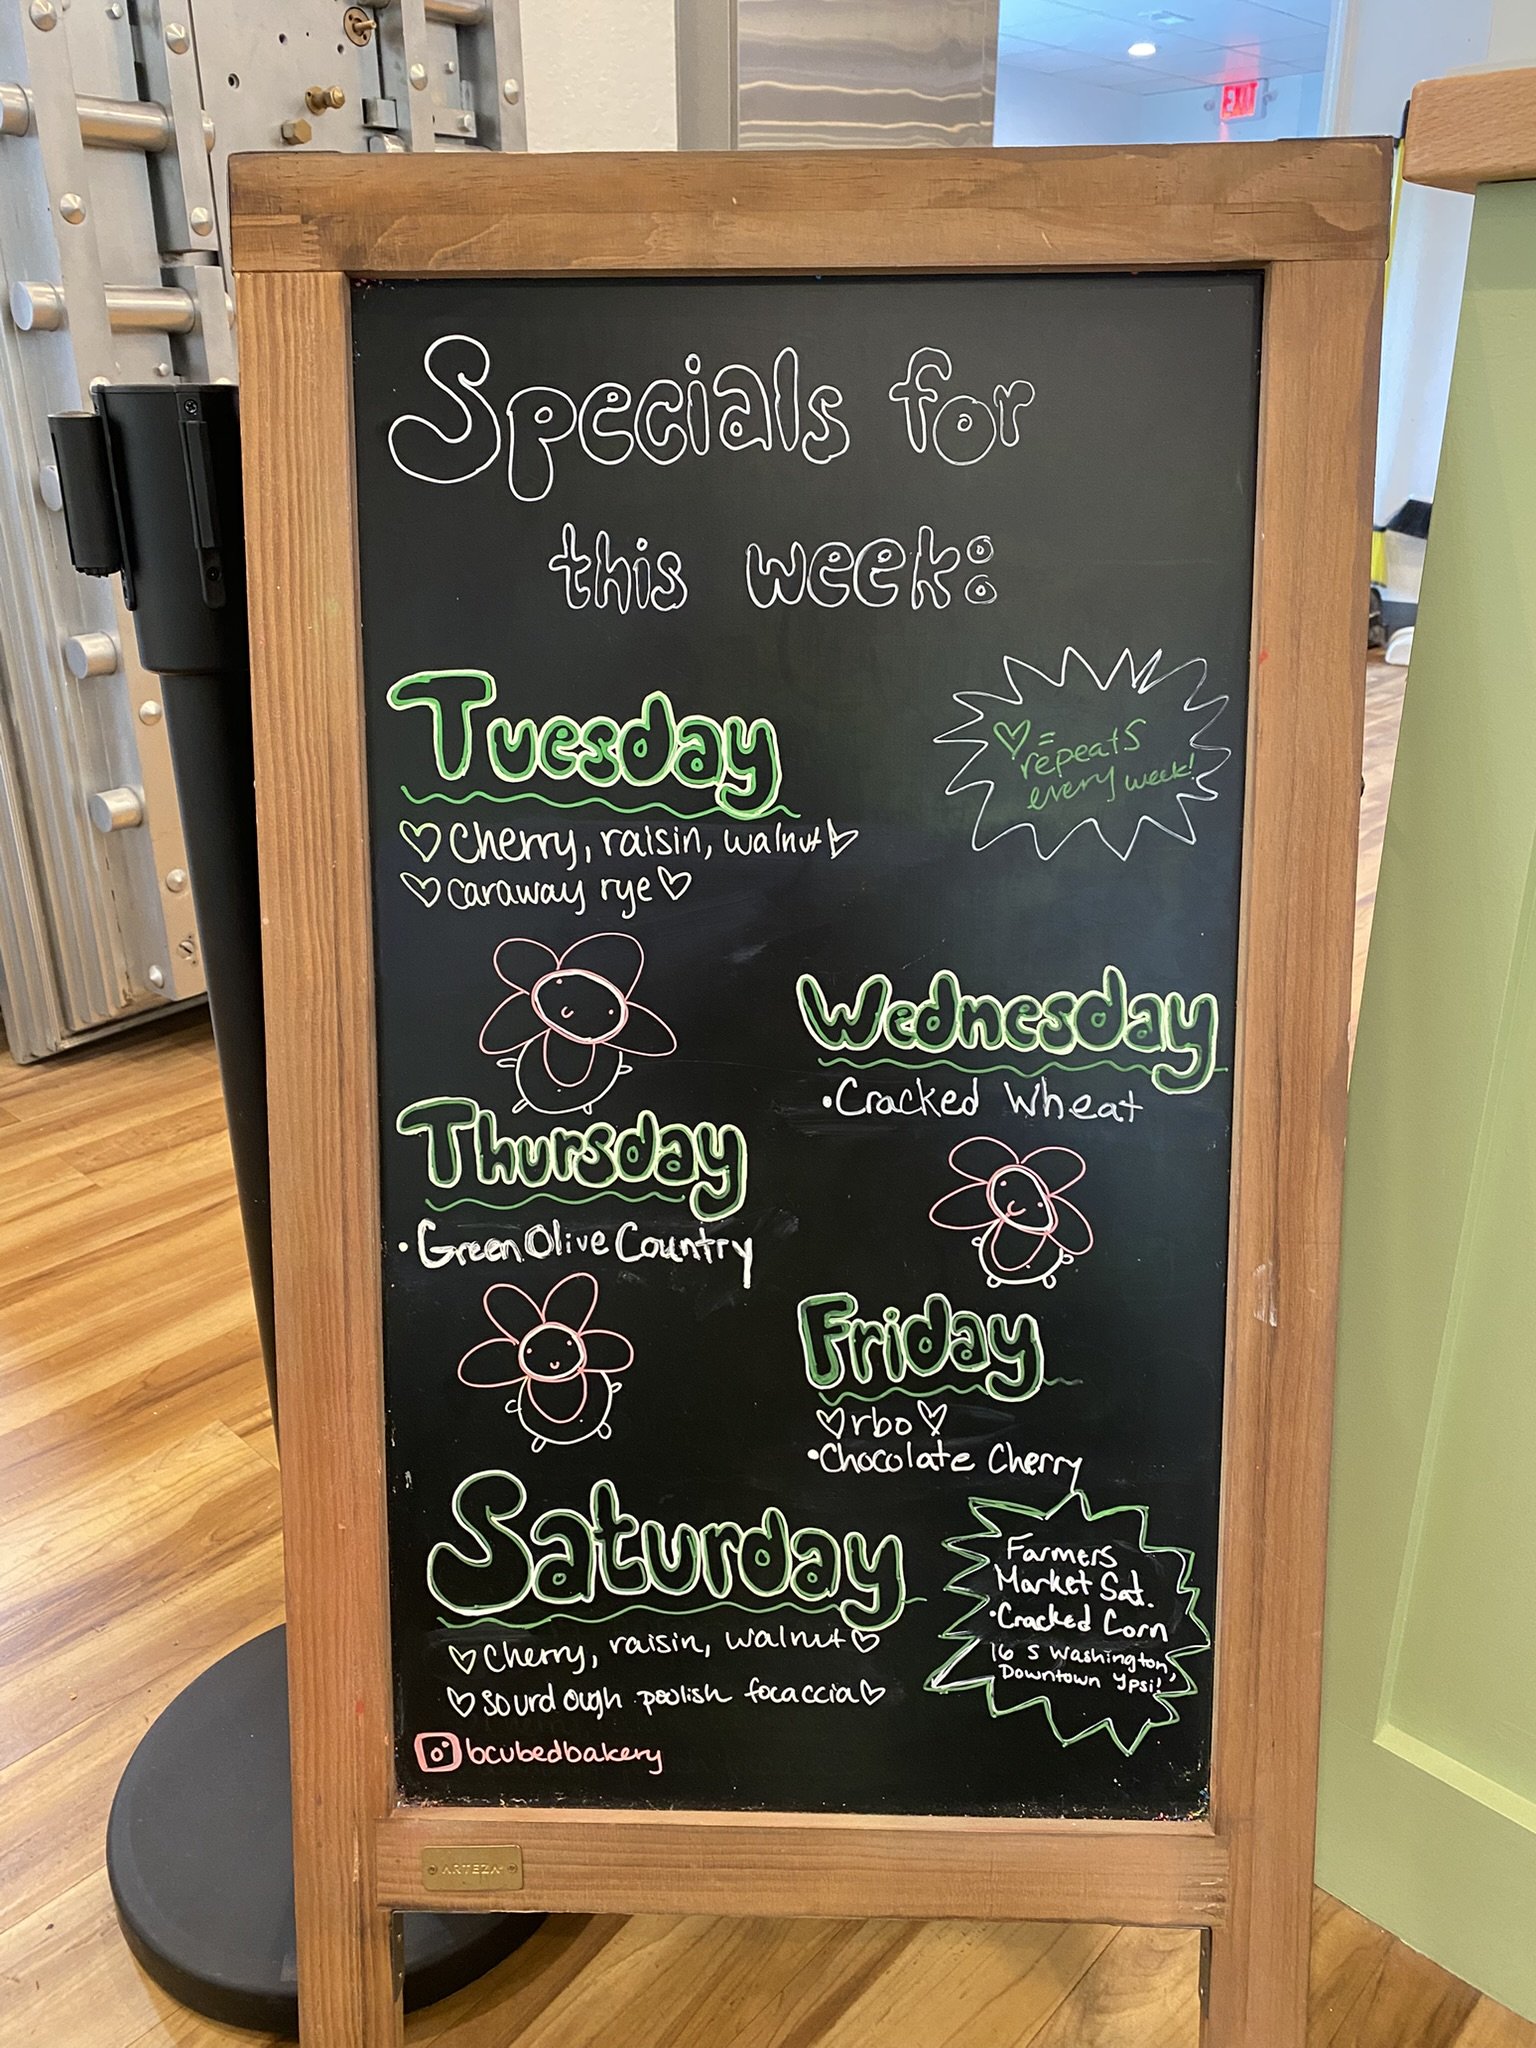 EXIT
Specials for
this week:
Tuesday
♡ Cherry, raisin, walnut ♡
♡ caraway rye ♡
♡ =
repeats
every week!
Wednesday
• Cracked Wheat
Thursday
• Green Olive Country
Friday
♡ rbo ♡
• Chocolate Cherry
Saturday
♡ Cherry, raisin, walnut ♡
♡ sourdough poolish focaccia ♡
Farmers
Market Sat.
• Cracked Corn
16 S Washington,
Downtown Ypsi!
bcubedbakery
ARTEZA